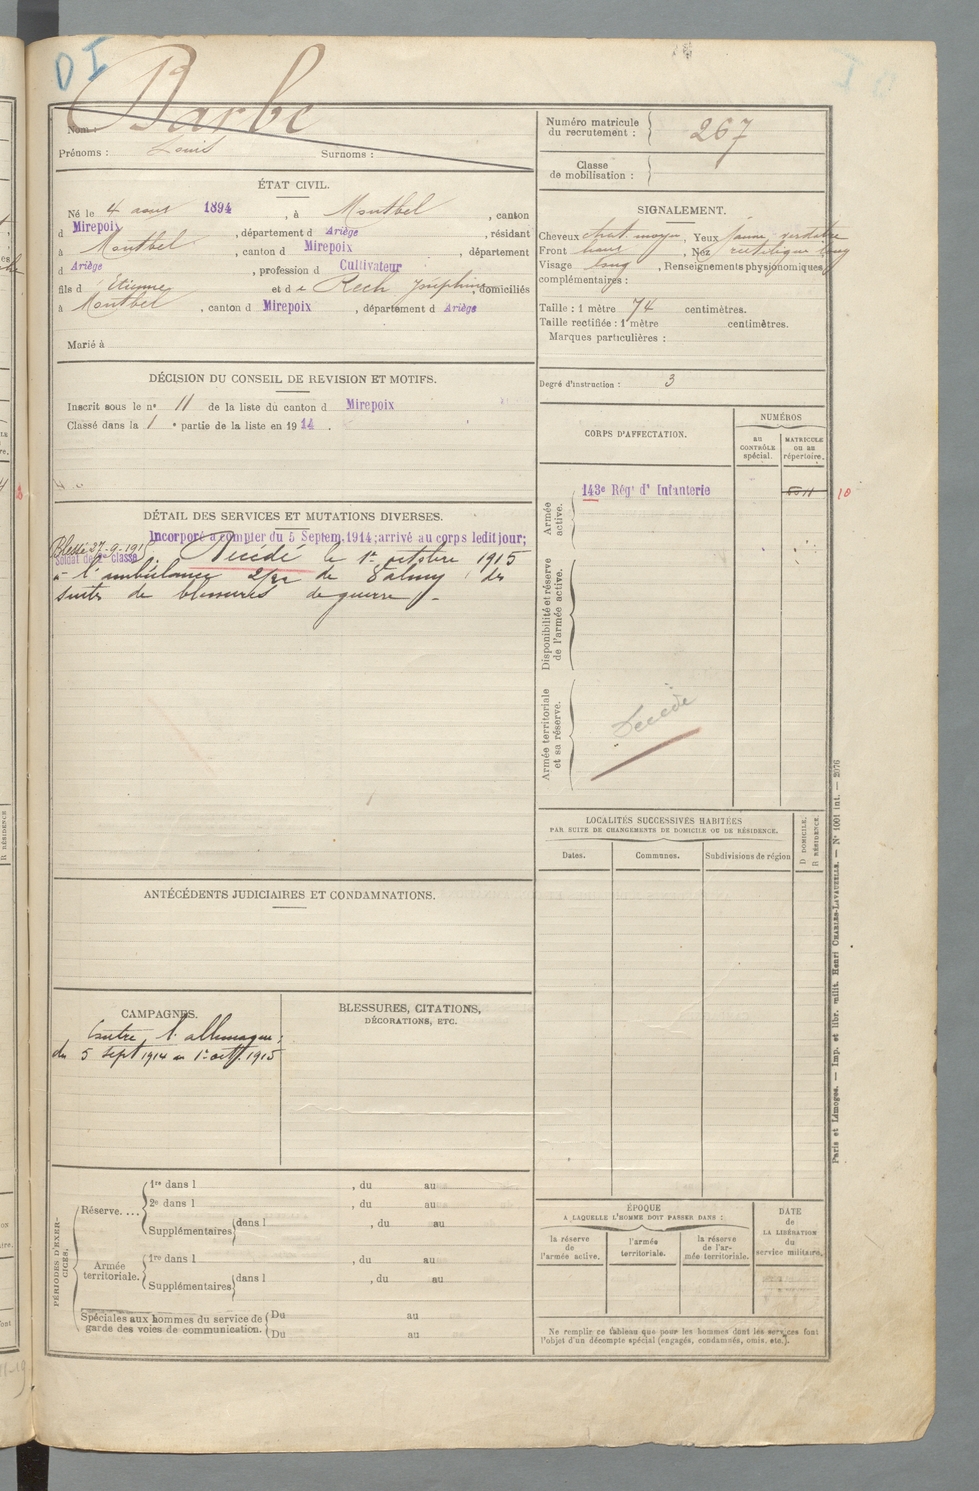 D I
Barbe
Nom :
Prénoms : Louis Surnoms :
ÉTAT CIVIL.
Né le 4 aout 1894, à Montbel, canton
d Mirepoix, département d Ariège, résidant
à Montbel, canton d Mirepoix, département
d Ariège, profession d Cultivateur
fils d Etienne et de Rech Joséphine, domiciliés
à Montbel, canton d Mirepoix, département d Ariège
Marié à
DÉCISION DU CONSEIL DE REVISION ET MOTIFS.
Inscrit sous le n° 11 de la liste du canton d Mirepoix
Classé dans la 1 e partie de la liste en 1914.
DÉTAIL DES SERVICES ET MUTATIONS DIVERSES.
Incorporé à compter du 5 Septem. 1914; arrivé au corps ledit jour;
Soldat de 2e classe
Blessé 27-9-1915
Décédé le 1er octobre 1915
à l'ambulance de des
suites de blessures de guerre -
ANTÉCÉDENTS JUDICIAIRES ET CONDAMNATIONS.
CAMPAGNES.
Contre l'allemagne;
du 5 Sept 1914 au 1er oct. 1915
BLESSURES, CITATIONS,
DÉCORATIONS, ETC.
PÉRIODES D'EXERCICES.
Réserve....
1re dans l , du au
2e dans l , du au
Supplémentaires dans l , du au
Armée territoriale.
1re dans l , du au
Supplémentaires dans l , du au
Spéciales aux hommes du service de
garde des voies de communication.
Du au
Du au
Numéro matricule
du recrutement : 267
Classe
de mobilisation :
SIGNALEMENT.
Cheveux chat. moyen, Yeux jaune verdâtre
Front haut, Nez rectiligne long
Visage long, Renseignements physionomiques
complémentaires :
Taille : 1 mètre 74 centimètres.
Taille rectifiée : 1 mètre centimètres.
Marques particulières :
Degré d'instruction : 3
CORPS D'AFFECTATION.
NUMÉROS
AU
CONTRÔLE
spécial.
MATRICULE
OU DE
répertoire.
Armée
active.
143e Régt d'Infanterie
10
Disponibilité et réserve
de l'armée active.
Armée territoriale
et sa réserve.
Décédé
LOCALITÉS SUCCESSIVES HABITÉES
PAR SUITE DE CHANGEMENTS DE DOMICILE OU DE RÉSIDENCE.
Dates.
Communes.
Subdivisions de région
D DOMICILE.
R RÉSIDENCE.
ÉPOQUE
A LAQUELLE L'HOMME DOIT PASSER DANS :
la réserve
de
l'armée active.
l'armée
territoriale.
la réserve
de l'ar-
mée territoriale.
DATE
de
LA LIBÉRATION
du
service militaire.
Ne remplir ce tableau que pour les hommes dont les services font
l'objet d'un décompte spécial (engagés, condamnés, omis, etc.).
Paris et Limoges. — Imp. et libr. milit. Henri CHARLES-LAVAUZELLE. — N° 1001 int. — 2076